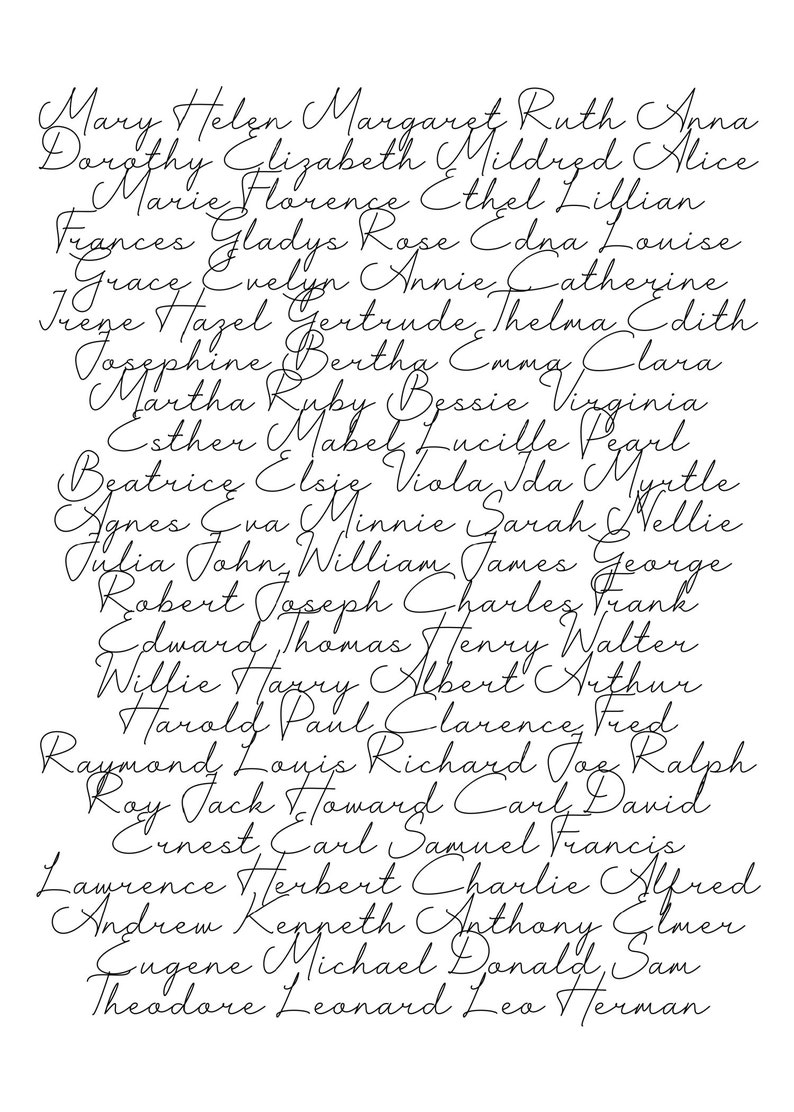 Mary Helen Margaret Ruth Anna
Dorothy Elizabeth Mildred Alice
Marie Florence Ethel Lillian
Frances Gladys Rose Edna Louise
Grace Evelyn Annie Catherine
Irene Hazel Gertrude Thelma Edith
Josephine Bertha Emma Clara
Martha Ruby Bessie Virginia
Esther Mabel Lucille Pearl
Beatrice Elsie Viola Ida Myrtle
Agnes Eva Minnie Sarah Nellie
Julia John William James George
Robert Joseph Charles Frank
Edward Thomas Henry Walter
Willie Harry Albert Arthur
Harold Paul Clarence Fred
Raymond Louis Richard Joe Ralph
Roy Jack Howard Carl David
Ernest Earl Samuel Francis
Lawrence Herbert Charlie Alfred
Andrew Kenneth Anthony Elmer
Eugene Michael Donald Sam
Theodore Leonard Leo Herman